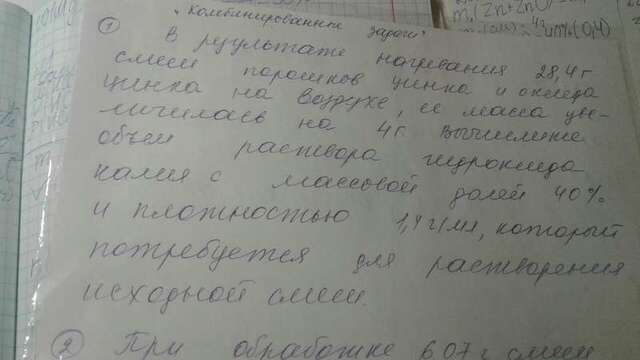 „Комбинированные задачи"
m(Zn+ZnO)
① В результате нагревания 28,4г
смеси порошков цинка и оксида
цинка на воздухе, ее масса уве-
личилась на 4г. Вычислите
объем раствора гидроксида
калия с массовой долей 40%
и плотностью 1,4г/мл, который
потребуется для растворения
исходной смеси.
② При обработке 6,07г смеси